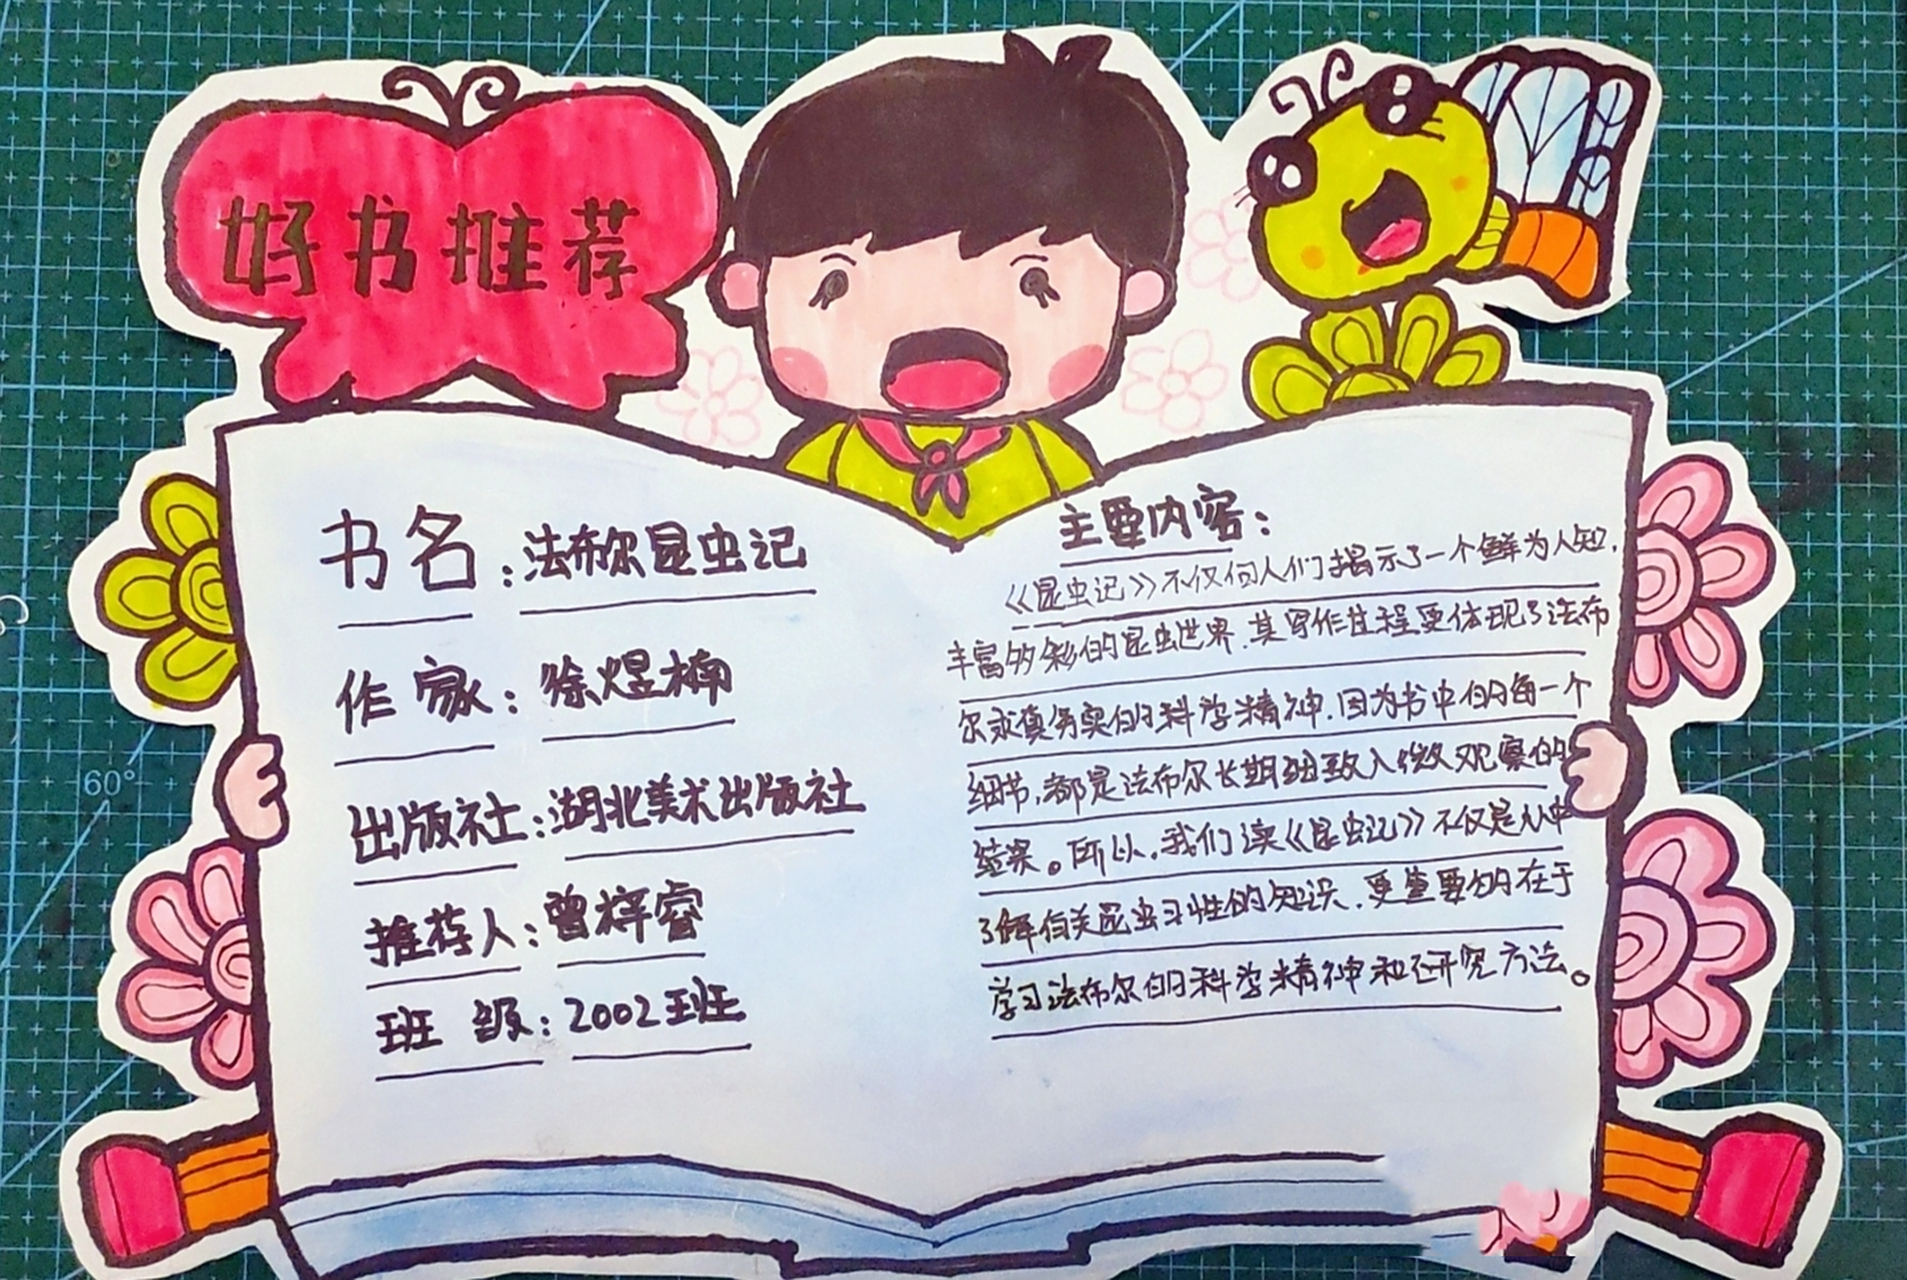 好书推荐
书名:法布尔昆虫记
作家:徐煜楠
出版社:湖北美术出版社
推荐人:曾梓睿
班级:2002班
主要内容:
《昆虫记》不仅向人们揭示了一个鲜为人知,
丰富多彩的昆虫世界.其写作过程更体现了法布
尔求真务实的科学精神.因为书中的每一个
细节,都是法布尔长期细致入微观察的
结果。所以,我们读《昆虫记》不仅是从中
了解有关昆虫习性的知识.更重要的在于
学习法布尔的科学精神和研究方法。
60°